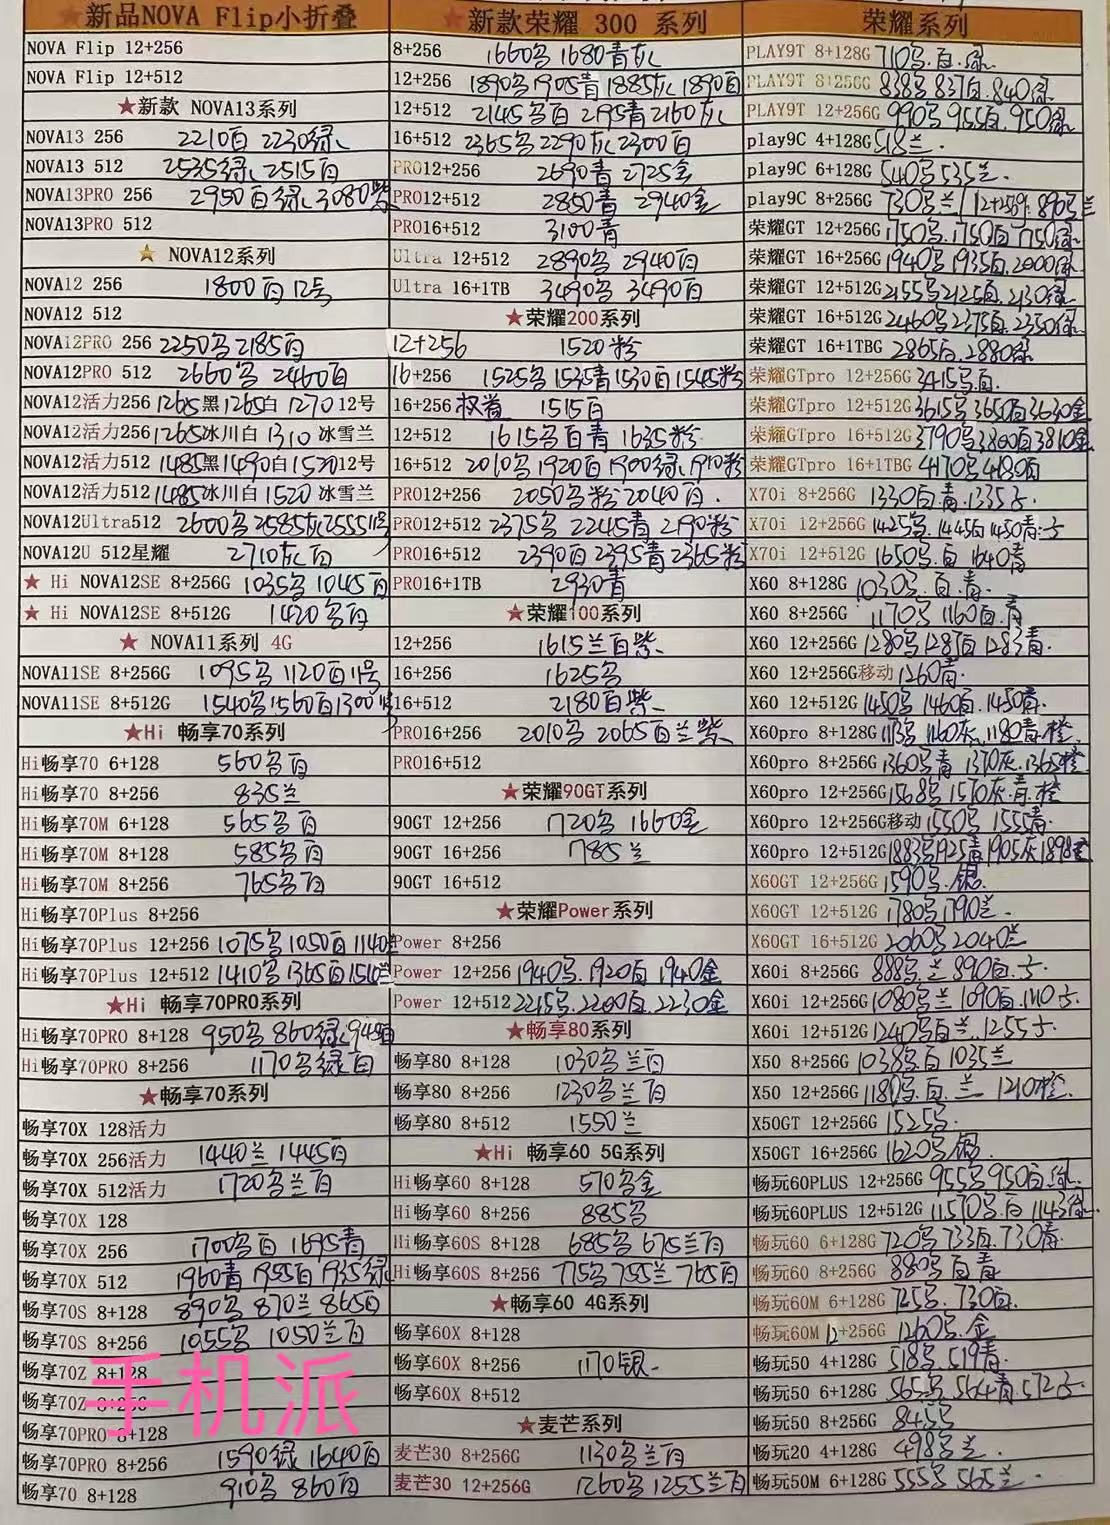 ★新品NOVA Flip小折叠
NOVA Flip 12+256
NOVA Flip 12+512
★新款 NOVA13系列
NOVA13 256 2210白 2230绿
NOVA13 512 2535绿 2515白
NOVA13PRO 256 2950白绿 3080紫
NOVA13PRO 512
★ NOVA12系列
NOVA12 256 1800白12号
NOVA12 512
NOVA12PRO 256 2250名2185白
NOVA12PRO 512 2660名 2460白
NOVA12活力256 1265黑1265白 1270 12号
NOVA12活力256 1265冰川白 1310 冰雪兰
NOVA12活力512 1485黑1490白1520 12号
NOVA12活力512 1485冰川白 1520 冰雪兰
NOVA12Ultra512 2600名2585灰2555 11号
NOVA12U 512星耀 2710灰白
★ Hi NOVA12SE 8+256G 1035名 1045白
★ Hi NOVA12SE 8+512G 1420名白
★ NOVA11系列 4G
NOVA11SE 8+256G 1095名 1120白11号
NOVA11SE 8+512G 1540名1560白1300
★Hi 畅享70系列
Hi畅享70 6+128 560名白
Hi畅享70 8+256 835兰
Hi畅享70M 6+128 565名白
Hi畅享70M 8+128 585名白
Hi畅享70M 8+256 765名白
Hi畅享70Plus 8+256
Hi畅享70Plus 12+256 1075名1050白1140兰
Hi畅享70Plus 12+512 1410名1365白1510兰
★Hi 畅享70PRO系列
Hi畅享70PRO 8+128 950名 860绿
Hi畅享70PRO 8+256 1170名绿白
★畅享70系列
畅享70X 128活力
畅享70X 256活力 1440兰 1445白
畅享70X 512活力 1720名兰白
畅享70X 128
畅享70X 256 1700名白 1695青
畅享70X 512 1960青 1955白1935绿
畅享70S 8+128 890名 870兰 865白
畅享70S 8+256 1055名 1050兰白
畅享70Z 8+128
畅享70Z 8+256
手机派
畅享70PRO 8+128
畅享70PRO 8+256 1590绿 1640白
畅享70 8+128 910名 860白
★新款荣耀 300 系列
8+256 1660名1680青灰
12+256 1890名1905青1885灰1890白
12+512 2145名白 2195青2160灰
16+512 2365名2290灰2300白
PRO12+256 2690青 2725金
PRO12+512 2850青 2940金
PRO16+512 3100青
Ultra 12+512 2890名 2940白
Ultra 16+1TB 3490名 3490白
★荣耀200系列
12+256 1520粉
16+256 1525名1535青1530白1545粉
16+256 权益 1515白
12+512 1615名白青 1635粉
16+512 2010名1920白1900绿1910粉
PRO12+256 2050名粉2040白
PRO12+512 2375名 2245青 2190粉
PRO16+512 2390白2395青2365粉
PRO16+1TB 2930青
★荣耀100系列
12+256 1615兰白紫
16+256 1625名
16+512 2180白紫
PRO16+256 2010名 2065白兰紫
PRO16+512
★荣耀90GT系列
90GT 12+256 1720名 1660金
90GT 16+256 1785兰
90GT 16+512
★荣耀Power系列
Power 8+256
Power 12+256 1940名.1920白.1940金
Power 12+512 2215名.2200白.2230金
★畅享80系列
畅享80 8+128 1030名兰白
畅享80 8+256 1230名兰白
畅享80 8+512 1550兰
★Hi 畅享60 5G系列
Hi畅享60 8+128 570名金
Hi畅享60 8+256 885名
Hi畅享60S 8+128 685名675兰白
Hi畅享60S 8+256 775名755兰765白
★畅享60 4G系列
畅享60X 8+128
畅享60X 8+256 1170银
畅享60X 8+512
★麦芒系列
麦芒30 8+256G 1130名兰白
麦芒30 12+256G 1260名1255兰白
荣耀系列
PLAY9T 8+128G 710名.白.绿
PLAY9T 8+256G 838名837白.840绿
PLAY9T 12+256G 990名955白.950绿
play9C 4+128G 518兰.
play9C 6+128G 540名535兰.
play9C 8+256G 730名兰 12+256G 890名兰
荣耀GT 12+256G 1750名.1750白1750绿
荣耀GT 16+256G 1940名1935白.2000绿
荣耀GT 12+512G 2155名2125白.2130绿
荣耀GT 16+512G 2460名2375白.2350绿
荣耀GT 16+1TBG 2865白.2880绿
荣耀GTpro 12+256G 3415名.白.
荣耀GTpro 12+512G 3615名3650白3630金
荣耀GTpro 16+512G 3790名3800白3810金
荣耀GTpro 16+1TBG 4170名4180白
X70i 8+256G 1330白.青.1335
X70i 12+256G 1425名.1445白1450青
X70i 12+512G 1650名.白 1640青
X60 8+128G 1030名.白.青.
X60 8+256G 1170名1160白.青
X60 12+256G 1280名1287白1283青.
X60 12+256G移动 1260青.
X60 12+512G 1450名 1460白.1450青.
X60pro 8+128G 1173名 1160灰.1180青.橙
X60pro 8+256G 1360名青 1370灰.1365橙
X60pro 12+256G 1568名 1570灰.青.橙
X60pro 12+256G移动 1550名 1555青.
X60pro 12+512G 1883名1925青1905灰1898
X60GT 12+256G 1590名.银
X60GT 12+512G 1780名1790兰.
X60GT 16+512G 2060名2040兰
X60i 8+256G 888名.兰890白.
X60i 12+256G 1080名兰1090白.1110
X60i 12+512G 1240名白兰.1255
X50 8+256G 1038名白1035兰
X50 12+256G 1180名.白.兰 1210橙
X50GT 12+256G 1525名.
X50GT 16+256G 1620名.银
畅玩60PLUS 12+256G 955名950白.绿
畅玩60PLUS 12+512G 名.白1143绿
畅玩60 6+128G 720名733白.730青
畅玩60 8+256G 880名白青
畅玩60M 6+128G 725名.730白.
畅玩60M 12+256G 1260名.金
畅玩50 4+128G 518名.519青.
畅玩50 6+128G 565名564青572
畅玩50 8+256G 845名
畅玩20 4+128G 498名兰.
畅玩50M 6+128G 555名565兰.